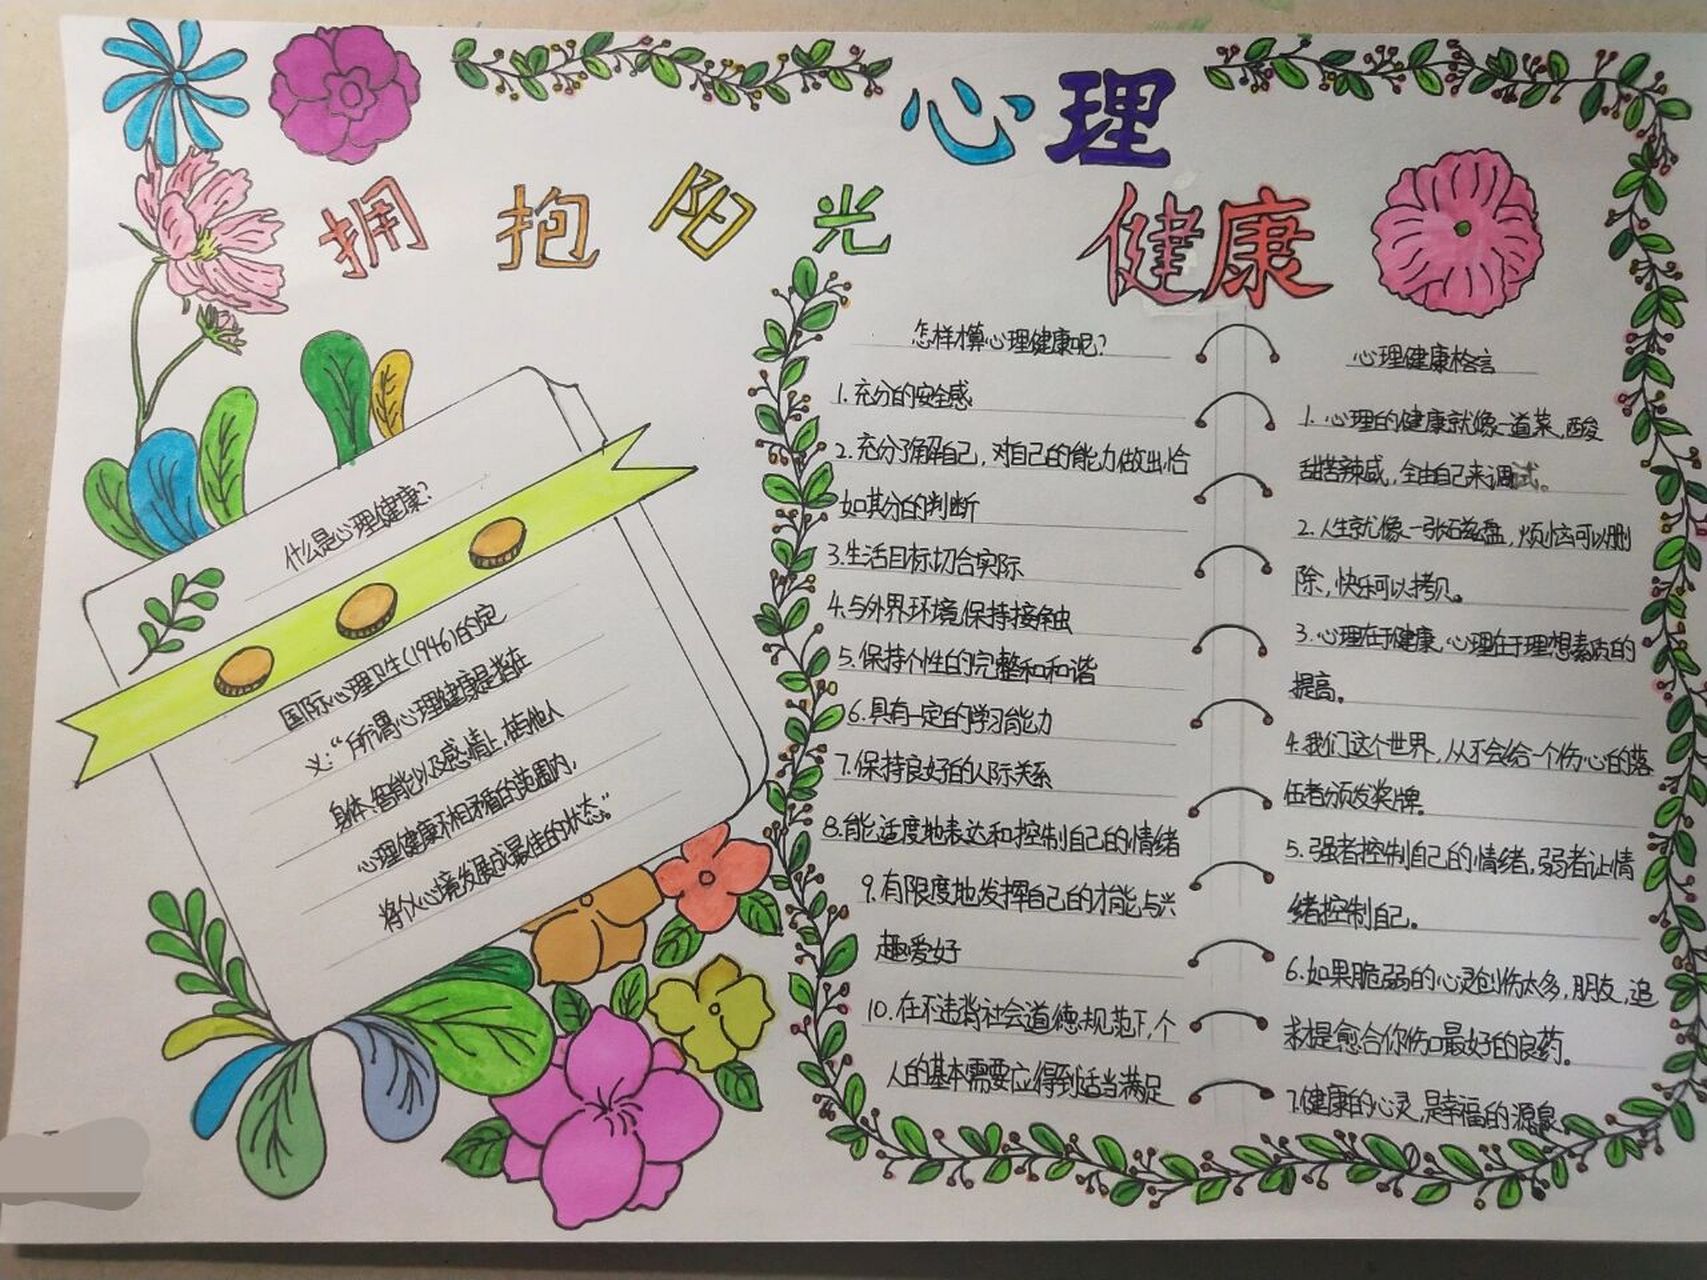 心理
健康
拥抱阳光
什么是心理健康?
国际心理卫生(1946)的定
义:“所谓心理健康是指在
身体、智能以及感情上,与他人
心理健康不相矛盾的范围内,
将个人心境发展成最佳的状态。”
怎样才算心理健康呢?
1.充分的安全感
2.充分了解自己,对自己的能力做出恰
如其分的判断
3.生活目标切合实际
4.与外界环境保持接触
5.保持个性的完整和和谐
6.具有一定的学习能力
7.保持良好的人际关系
8.能适度地表达和控制自己的情绪
9.有限度地发挥自己的才能与兴
趣爱好
10.在不违背社会道德规范下,个
人的基本需要应得到适当满足
心理健康格言
1.心理的健康就像一道菜,酸
甜苦辣咸,全由自己来调试。
2.人生就像一张磁盘,烦恼可以删
除,快乐可以拷贝。
3.心理在于健康,心理在于理想素质的
提高。
4.我们这个世界,从不会给一个伤心的落
伍者颁发奖牌。
5.强者控制自己的情绪,弱者让情
绪控制自己。
6.如果脆弱的心灵创伤太多,朋友,追
求才是愈合你伤口最好的良药。
7.健康的心灵,是幸福的源泉。